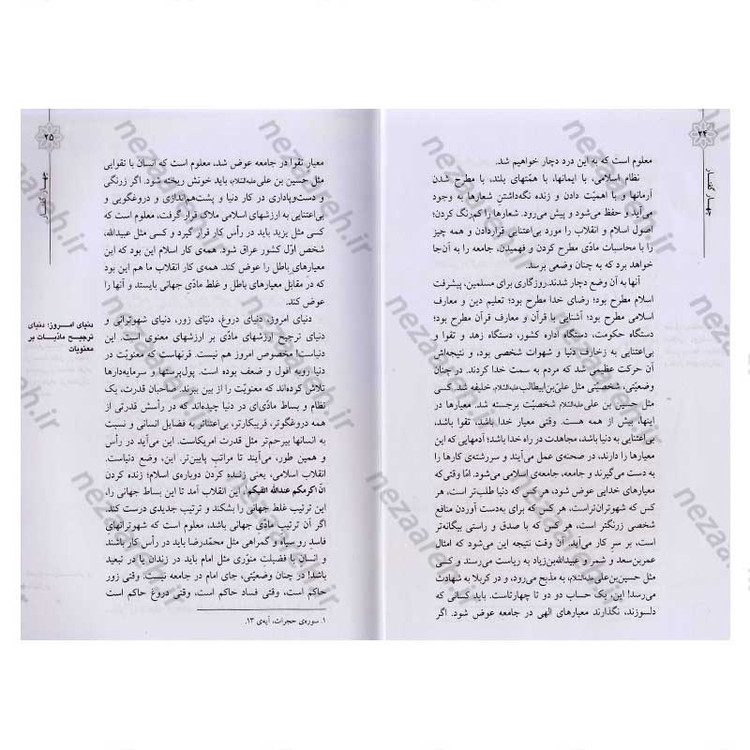 ۲۴
چهار گفتار
معلوم است که به این درد دچار خواهیم شد.
نظام اسلامی، با ایمانها، با همّتهای بلند، با مطرح شدن
آرمانها و با اهمّیت دادن و زنده نگه‌داشتن شعارها به وجود
می‌آید و حفظ می‌شود و پیش می‌رود. شعارها را کم‌رنگ کردن؛
اصول اسلام و انقلاب را مورد بی‌اعتنایی قراردادن و همه چیز
را با محاسبات مادّی مطرح کردن و فهمیدن، جامعه را به آن‌جا
خواهد برد که به چنان وضعی برسد.
آنها به آن وضع دچار شدند. روزگاری برای مسلمین، پیشرفت
اسلام مطرح بود؛ رضای خدا مطرح بود؛ تعلیم دین و معارف
اسلامی مطرح بود؛ آشنایی با قرآن و معارف قرآن مطرح بود؛
دستگاه حکومت، دستگاه اداره کشور، دستگاه زهد و تقوا و
بی‌اعتنایی به زخارف دنیا و شهوات شخصی بود، و نتیجه‌اش
آن حرکت عظیمی شد که مردم به سمت خدا کردند. در چنان
وضعیتی، شخصیّتی مثل علی‌بن‌ابیطالب علیه‌السّلام، خلیفه شد. کسی
مثل حسین بن علی علیه‌السّلام شخصیّت برجسته شد. معیارها در
اینها، بیش از همه هست. وقتی معیار خدا باشد، تقوا باشد،
بی‌اعتنایی به دنیا باشد، مجاهدت در راه خدا باشد؛ آدمهایی که این
معیارها را دارند، در صحنه‌ی عمل می‌آیند و سررشته‌ی کارها را
به دست می‌گیرند و جامعه، جامعه‌ی اسلامی می‌شود. امّا وقتی که
معیارهای خدایی عوض شود، هر کس که دنیا طلب‌تر است، هر
کس که شهوتران‌تر‌است، هر کس که برای به‌دست آوردن منافع
شخصی زرنگتر است، هر کس که با صدق و راستی بیگانه‌تر
است، بر سرِ کار می‌آید. آن وقت نتیجه این می‌شود که امثال
عمربن‌سعد و شمر و عبیدالله‌بن‌زیاد به ریاست می‌رسند و کسی
مثل حسین‌بن‌علی علیه‌السّلام، به مذبح می‌رود، و در کربلا به شهادت
می‌رسد! این، یک حساب دو دو تا چهارتاست. باید کسانی که
دلسوزند، نگذارند معیارهای الهی در جامعه عوض شود. اگر
۲۵
معیارِ تقوا در جامعه عوض شد، معلوم است که انسان با تقوایی
مثل حسین بن علی علیه‌السّلام، باید خونش ریخته شود. اگر زرنگی
و دست‌وپاداری در کار دنیا و پشت‌هم‌اندازی و دروغگویی و
بی‌اعتنایی به ارزشهای اسلامی ملاک قرار گرفت، معلوم است که
کسی مثل یزید باید در رأس کار قرار گیرد و کسی مثل عبیدالله،
شخص اوّل کشور عراق شود. همه‌ی کار اسلام این بود که این
معیارهای باطل را عوض کند. همه‌ی کار انقلاب ما هم این بود
که در مقابل معیارهای باطل و غلط مادّیِ جهانی بایستد و آنها را
عوض کند.
دنیای امروز؛ دنیای
ترجیح مادّیات بر
معنویات
دنیای امروز، دنیای دروغ، دنیای زور، دنیای شهوترانی و
دنیای ترجیح ارزشهای مادّی بر ارزشهای معنوی است. این
دنیاست! مخصوص امروز هم نیست. قرنهاست که معنویّت در
دنیا روبه افول و ضعف بوده است. پول‌پرستها و سرمایه‌دارها
تلاش کرده‌اند که معنویّت را از بین ببرند. صاحبان قدرت، یک
نظام و بساط مادّی‌ای در دنیا چیده‌اند که در رأسش قدرتی از
همه دروغگوتر، فریبکارتر، بی‌اعتناتر به فضایل انسانی و نسبت
به انسانها بیرحم‌تر مثل قدرت امریکاست. این می‌آید در رأس
و همین طور، می‌آیند تا مراتب پایین‌تر. این، وضع دنیاست.
انقلاب اسلامی، یعنی زنده کردن دوباره‌ی اسلام؛ زنده کردن
انّ اکرمکم عندالله اتقیکم. این انقلاب آمد تا این بساط جهانی را،
این ترتیب غلط جهانی را بشکند و ترتیب جدیدی درست کند.
اگر آن ترتیب مادّی جهانی باشد، معلوم است که شهوترانهای
فاسد رو سیاه و گمراهی مثل محمّدرضا باید در رأس کار باشند
و انسان با فضیلت منوّری مثل امام باید در زندان یا در تبعید
باشد! در چنان وضعیّتی، جای امام در جامعه نیست. وقتی زور
حاکم است، وقتی فساد حاکم است، وقتی دروغ حاکم است
۱. سوره‌ی حجرات، آیه‌ی ۱۳.
nezaareh.ir